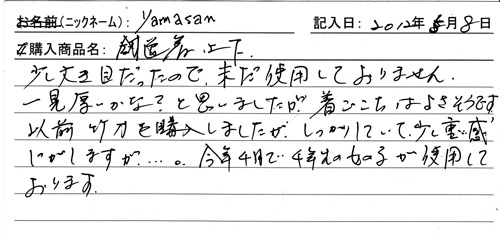 お名前(ニックネーム): Yamasan 記入日: 2012年5月8日
ご購入商品名: 剣道着上下.
少し大き目だったので、未だ使用しておりません.
一見厚いかな?と思いましたが、着ごこちはよさそうです
以前竹刀を購入しましたが、しっかりしていて、少し重い感
じがしますが…。今年4月で4年生の女の子が使用して
おります.